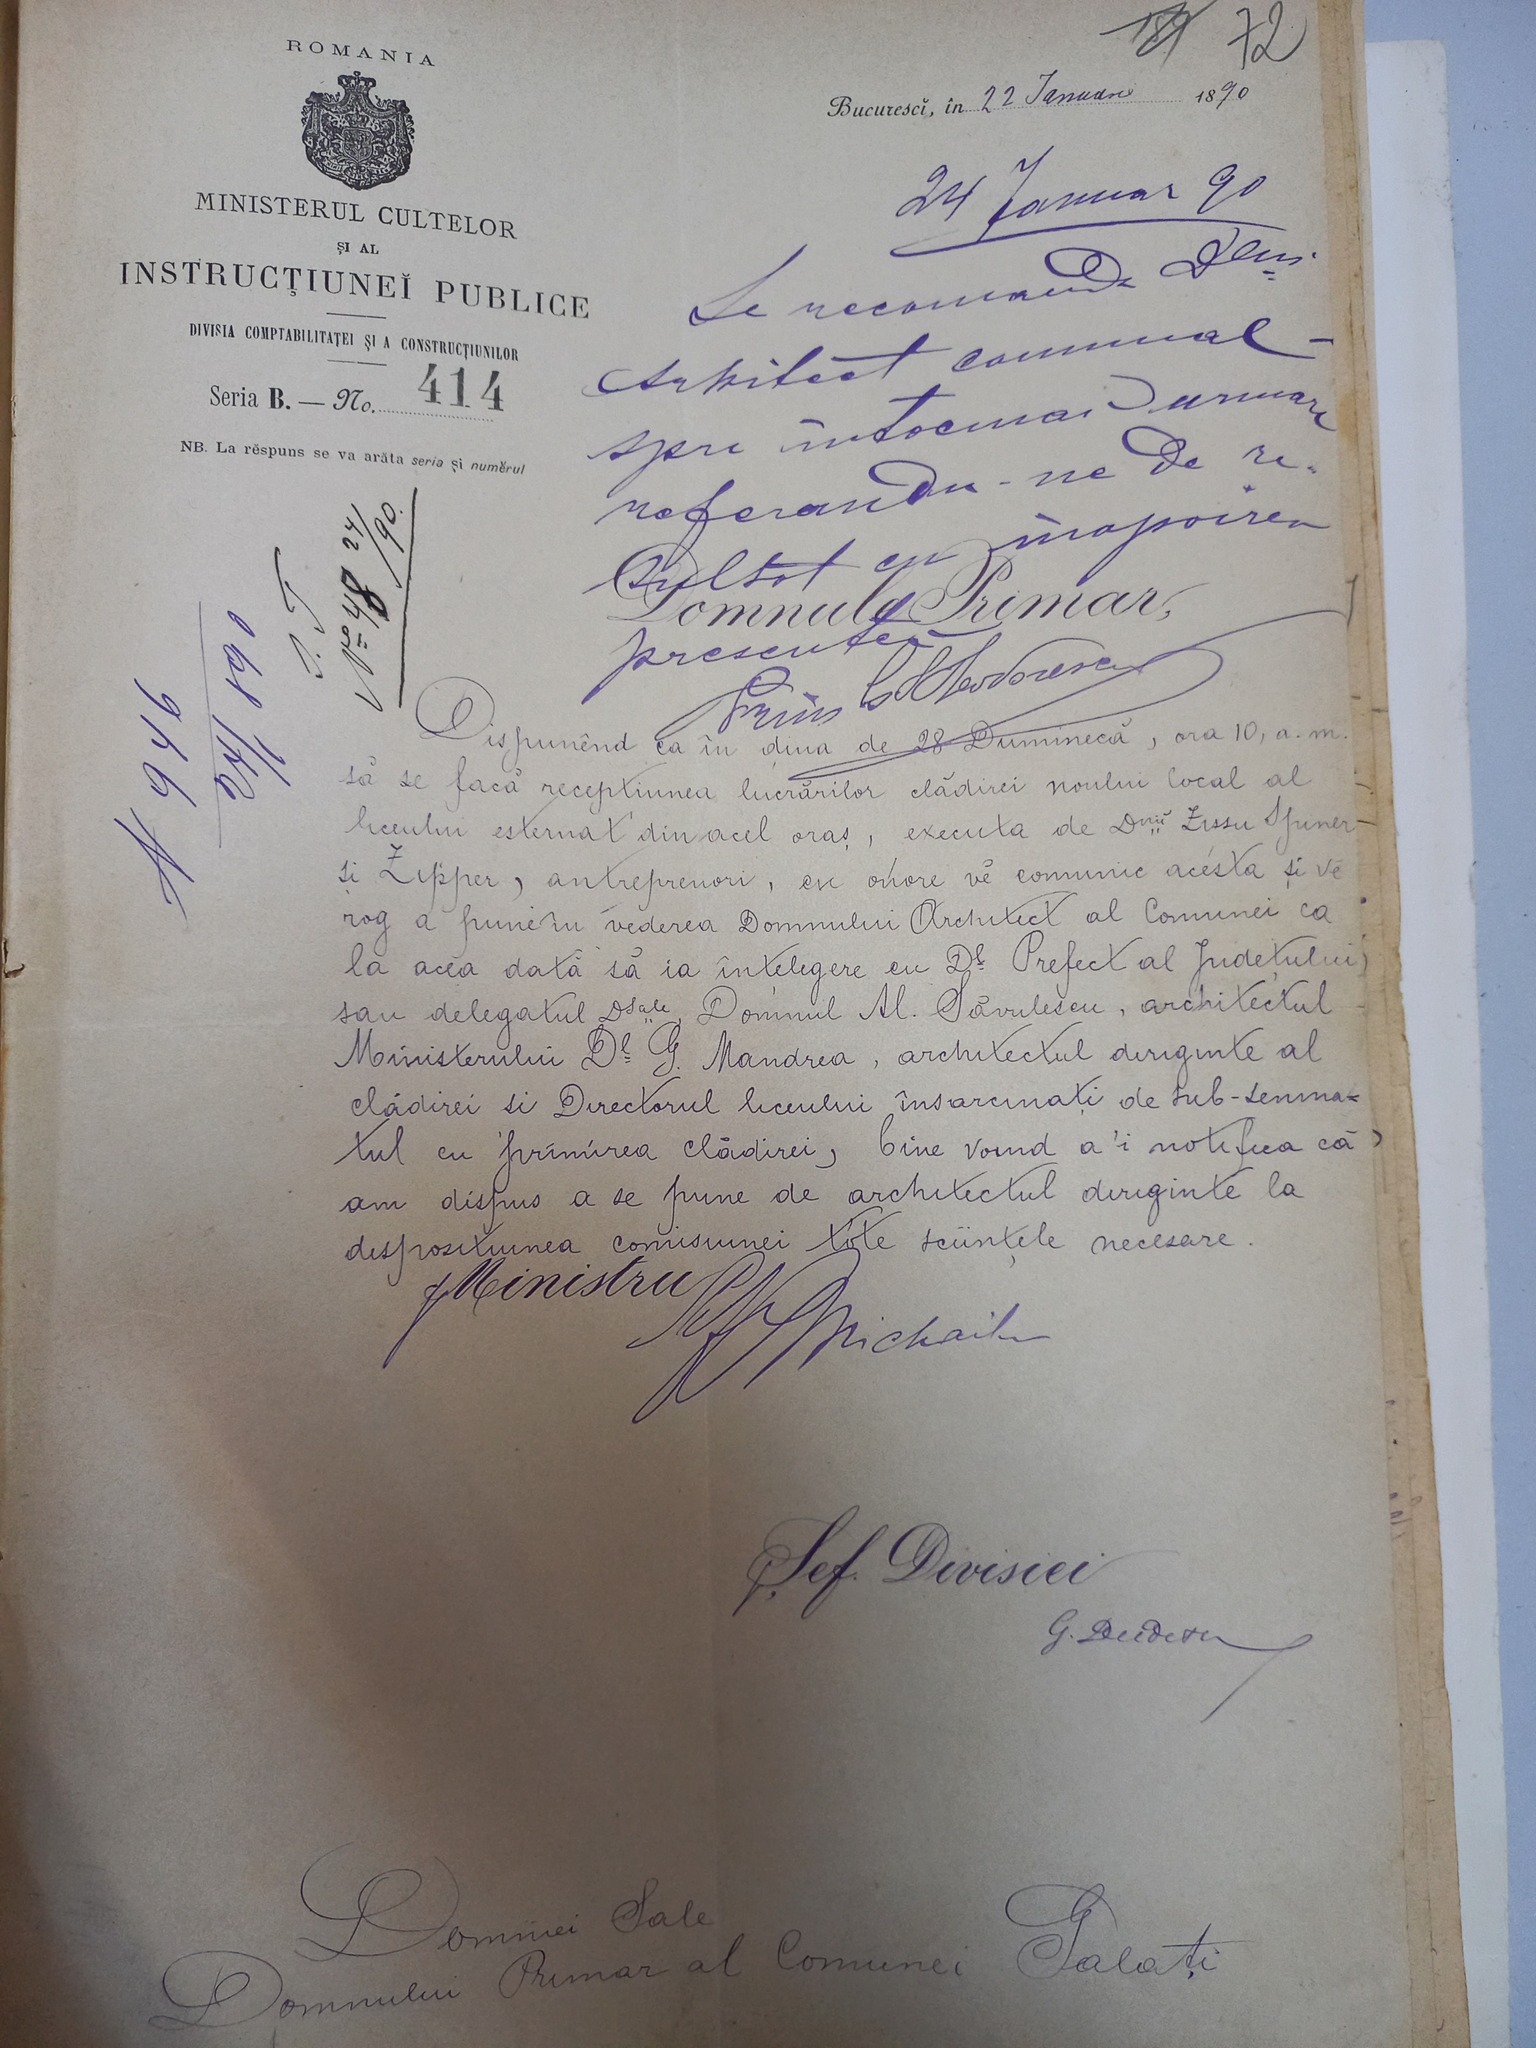 72
ROMANIA
Bucurescĭ, în 22 Ianuarie 1890
MINISTERUL CULTELOR
ȘI AL
INSTRUCȚIUNEĬ PUBLICE
DIVISIA COMPTABILITAȚEI ȘI A CONSTRUCȚIUNILOR
Seria B. — No. 414
NB. La rĕspuns se va arăta seria și numĕrul
24 Ianuar 90
Se recomandă Dlui
Arhitect comunal
spre întocmai urmare
referandu-ne de re-
sultat cu inapoirea
presentei
No 48 24/90.
N 946
24/1 890
Domnule Primar,
Dispunênd ca în diua de 28 Duminecă, ora 10, a.m.
să se facă recepțiunea lucrărilor clădirei noului local al
liceului esternat din acel oraș, executa de Dnii Zissu Spuner
și Zipper, antreprenori, cu onore vĕ comunic acésta și vĕ
rog a pune în vederea Domnului Architect al Comunei ca
la acea dată să ia înțelegere cu Dl Prefect al Județului,
sau delegatul Dsale, Domnul Al. Săvulescu, architectul
Ministerului Dl G. Mandrea, architectul diriginte al
clădirei si Directorul liceului însarcinați de sub-semna-
tul cu primirea clădirei, bine voind a'i notifica că
am dispus a se pune de architectul diriginte la
dispositiunea comisiunei tóte sciințele necesare.
p Ministru Michail
Șef. Divisiei
G.
Domniei Sale
Domnului Primar al Comunei Galați